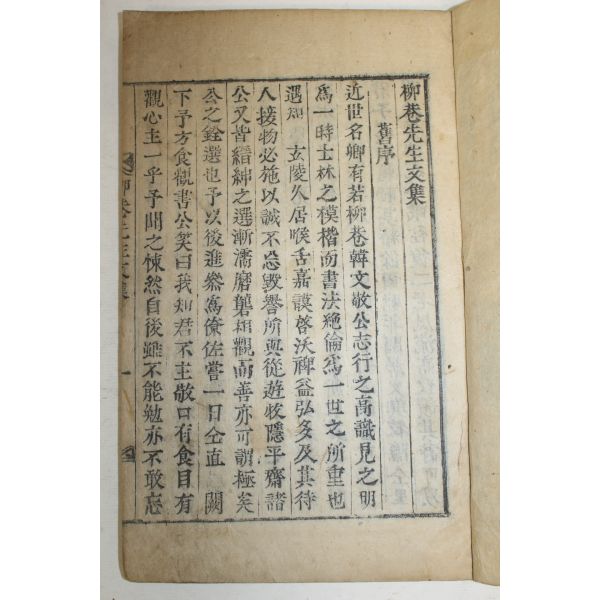 柳巷先生文集
舊序
近世名卿有若柳巷韓文敬公志行之高識見之明
爲一時士林之模楷而書法絶倫爲一世之所重也
遇知 玄陵久居喉舌嘉謨啓沃裨益弘多及其待
人接物必施以誠不忌毀譽所與從遊牧隱平齋諸
公又皆縉紳之選漸濡磨礱相觀而善亦可謂極矣
公之銓選也予以後進叅爲僚佐嘗一日仝直 闕
下予方食觀書公笑曰我知君不主敬口有食目有
觀心主一乎予聞之悚然自後雖不能勉亦不敢忘
柳巷先生文集
一